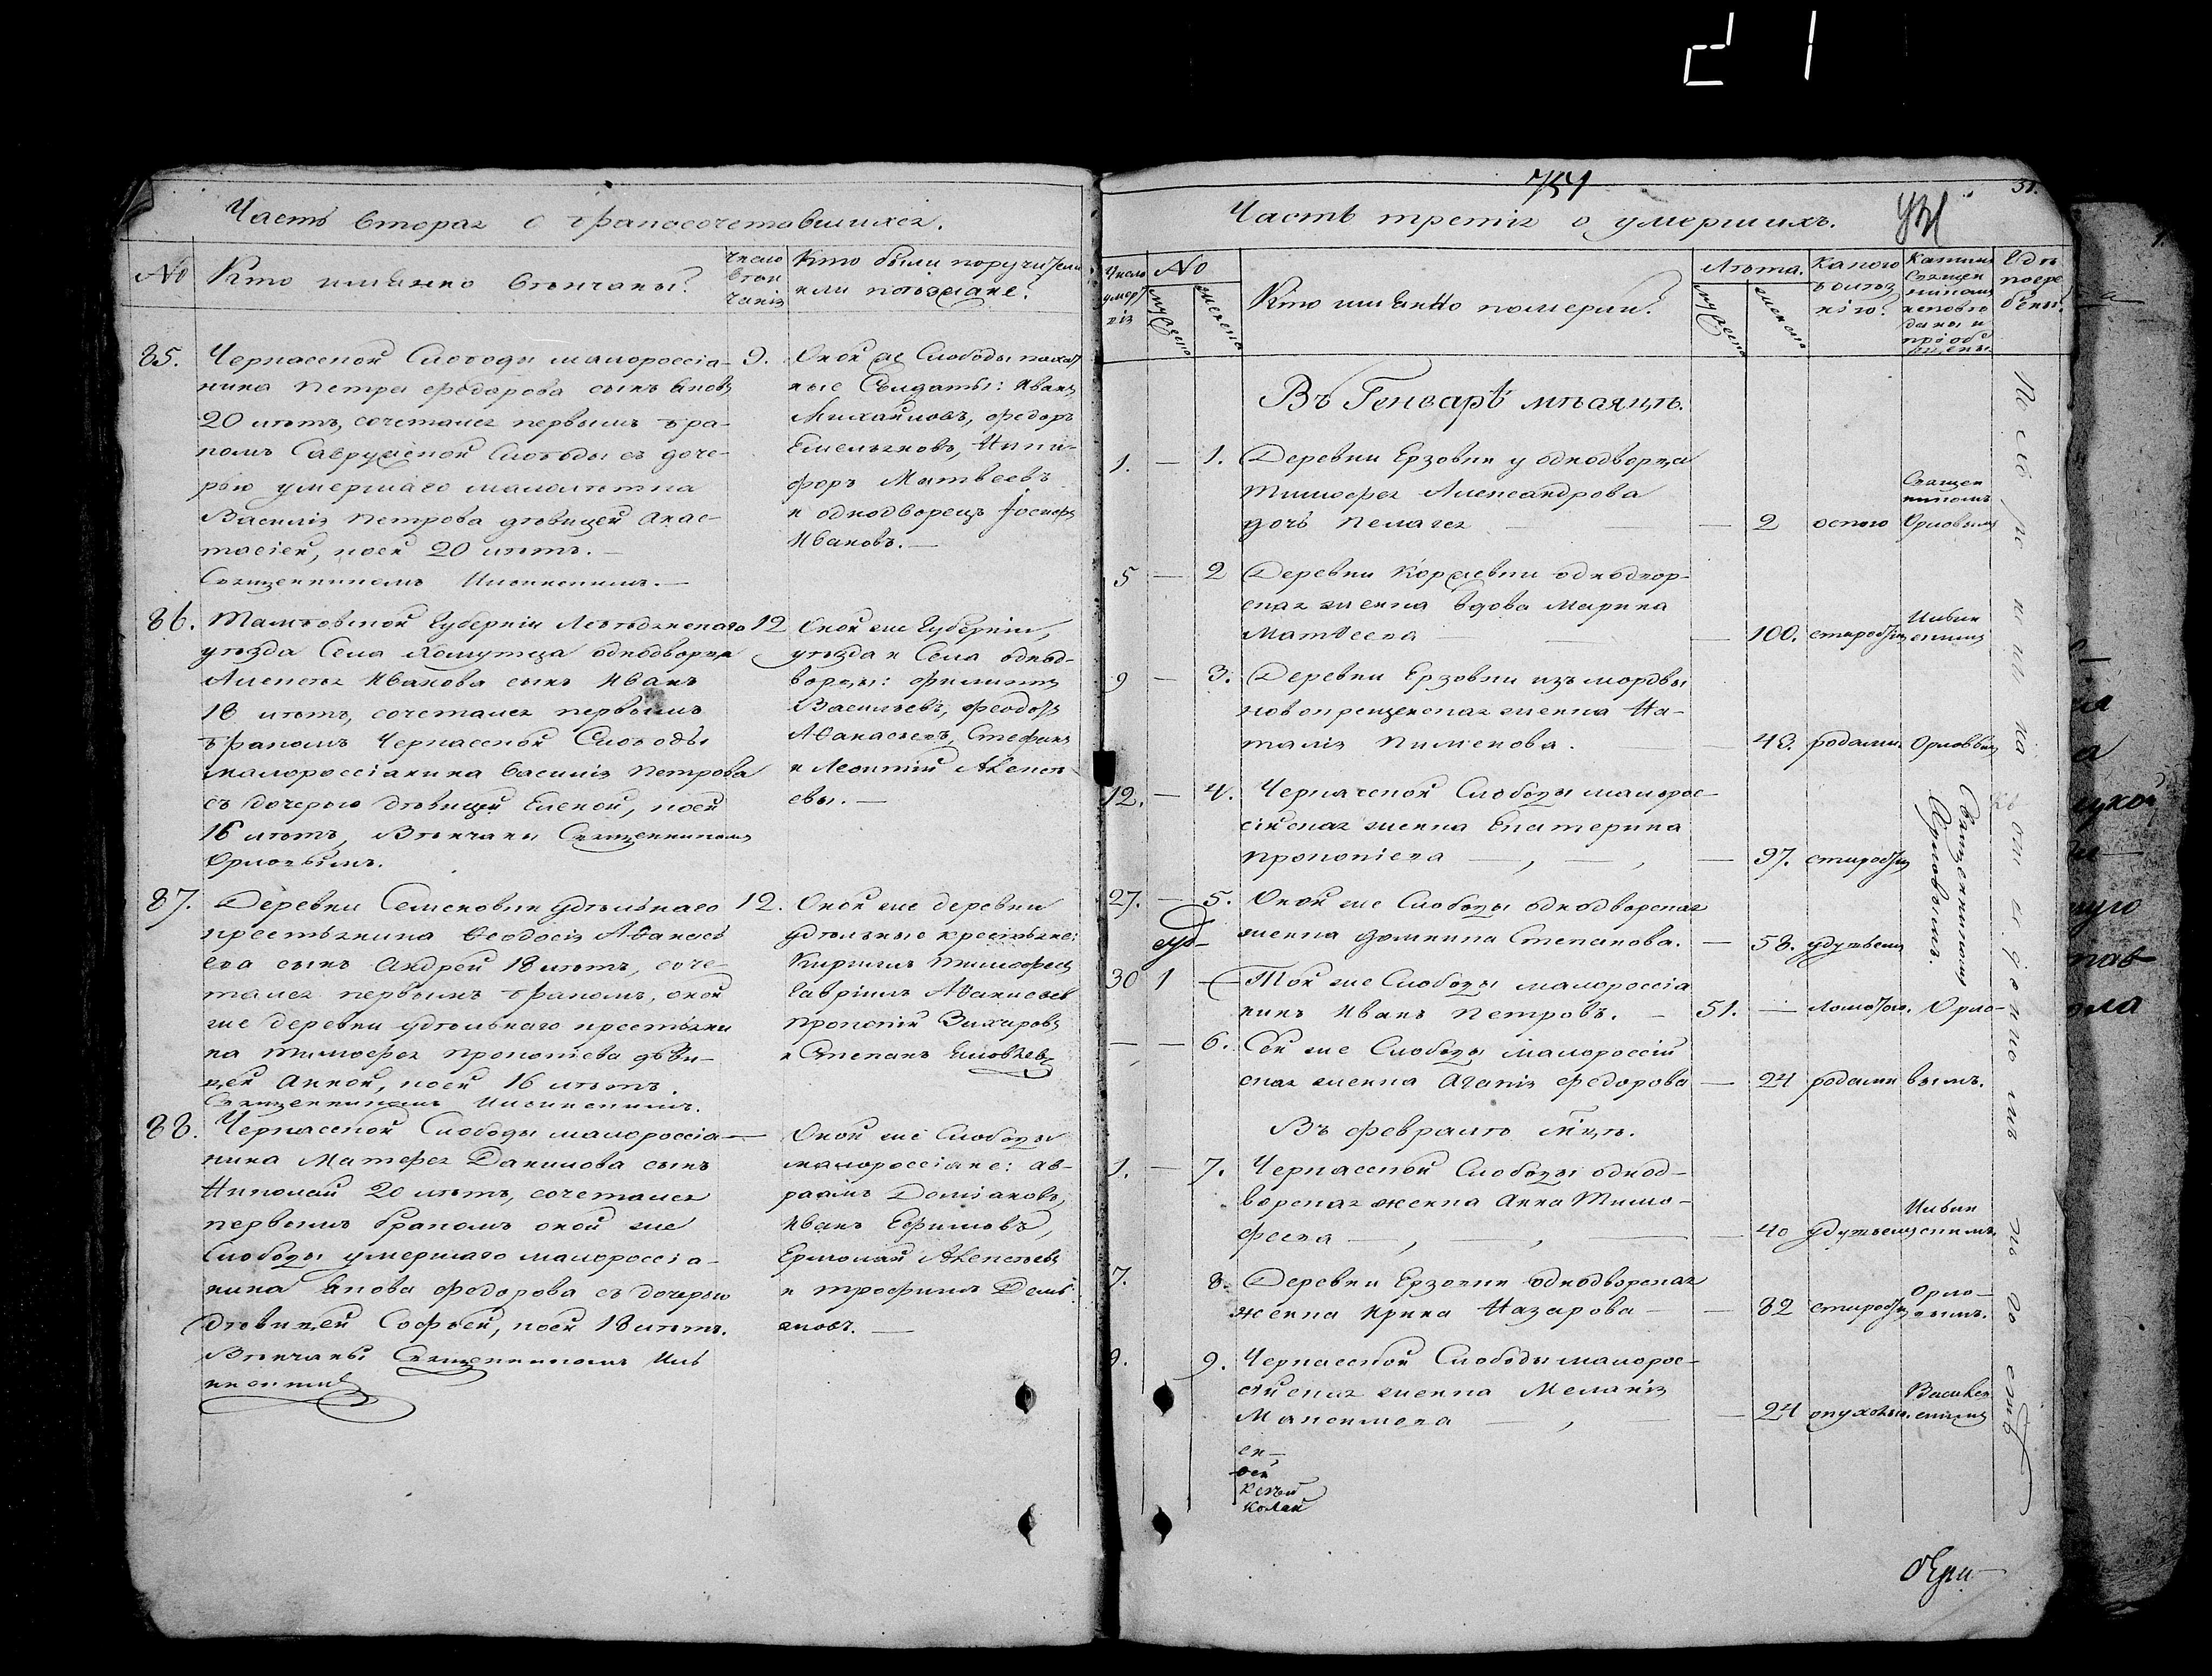 Часть вторая о бракосочетавшихся.
№
Кто именно венчаны?
Число венчанія
Кто были поручители
или поѣзжане?
85.
Черкасской Слободы малороссія-
нина Петра Федорова сынъ Яковъ
20 лѣтъ, сочетался первымъ бра-
комъ Саврушской Слободы съ доче-
рью умершаго малолѣтка
Василія Петрова дѣвицей Анас-
тасіей, коей 20 лѣтъ.
Священникомъ
9.
Оной же Слободы пахат
ные Солдаты: Иванъ
Михайловъ, Федоръ
Емельяновъ, Ники-
форъ Матвеевъ
и однодворецъ Іосифъ
Ивановъ.
86.
Тамбовской Губерніи Лебедянскаго
уѣзда Села Хомутца однодворца
Алексѣя Иванова сынъ Иванъ
18 лѣтъ, сочетался первымъ
бракомъ Черкасской Слободы
малороссіянина Василія Петрова
съ дочерью дѣвицей Еленой, коей
16 лѣтъ, Вѣнчаны Священникомъ
Орловымъ.
12
Оной же Губерніи,
уѣзда и Села однод-
ворцы: Филиппъ
Васильевъ, Феодотъ
Аѳанасьевъ, Стефанъ
и Леонтій Алексѣ
евы.
87.
Деревни Семеновки удѣльнаго
крестьянина Ѳеодосія Аѳанась
ева сынъ Андрей 18 лѣтъ, соче-
тался первымъ бракомъ, оной
же деревни удѣльнаго крестьяни
на Тимофея Прокопіева дѣви-
цей Анной, коей 16 лѣтъ.
Священникомъ
12.
Оной же деревни
удѣльные крестьяне:
Кирилъ Тимофеевъ
Гавріилъ Аѳанасьевъ
Прокопій Захаровъ
и Степанъ Яковлевъ
88.
Черкасской Слободы малороссія-
нина Матфея Данилова сынъ
Николай 20 лѣтъ, сочетался
первымъ бракомъ оной же
Слободы умершаго малороссія-
нина Якова Федорова съ дочерью
Дѣвицей Софьей, коей 18 лѣтъ.
Вѣнчаны Священникомъ
Оной же Слободы
малороссіяне: Ав-
раамъ Деміановъ,
Иванъ Ефимовъ,
Ермолай Алексѣевъ
и Трофимъ Демь
яновъ.
754
51.
Часть третія о умершихъ.
Число умертвія
№
мужеска
женска
Кто именно померли?
Лѣта.
мужеска
женска
Какою
болѣз
нію?
Какимъ
Священ
никомъ
исповѣ
даны и
пріоб
щены
Гдѣ
погре
бены?
Въ Генварѣ мѣсяцѣ.
1. — 1. Деревни Ерзовки у однодворца
Тимофея Александрова
дочь Пелагея — 2 оспою Священ
никомъ
Орловымъ
5 — 2 Деревни Коржевки однодвор-
ская женка вдова Марина
Матвеева — 100. старостію
9 — 3. Деревни Ерзовки изъ мордвы
новокрещенская женка На-
талія Пименова. 43. родами Орловымъ
12. — 4. Черкаской Слободы малорос-
сійская женка Екатерина
Прокопіева — 97. старостію
Священникомъ
Орловымъ.
27. — 5. Оной же Слободы однодворская
женка Домникія Степанова. — 58. удушьемъ
30 1 — Той же Слободы малороссія
нинъ Иванъ Петровъ. — 51. — ломотою. Орло-
— — 6. Сей же Слободы малороссій
ская женка Агапія Федорова — 24 родами вымъ.
Въ февралѣ м-цѣ.
1. — 7. Черкасской Слободы однод-
ворская женка Анна Тимо-
феева — 40 удушьемъ
7. 8. Деревни Ерзовки однодворская
женка Ирина Назарова — 82 старостію Орло-
вымъ.
9. 9. Черкасской Слободы малорос-
сійская женка Меланія
Максимова — 24 опухолью.